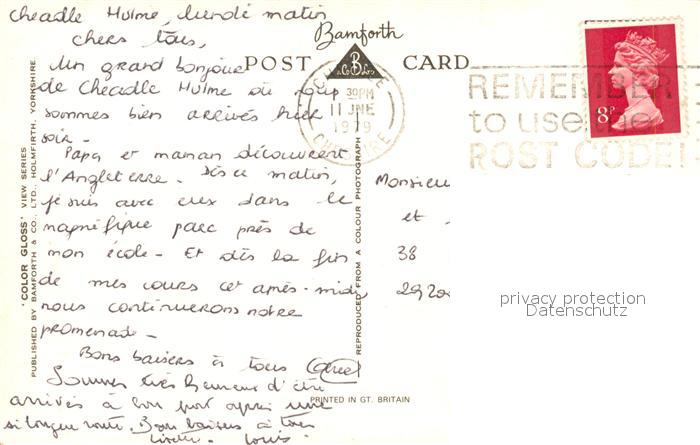 Cheadle Hulme, lundi matin
chers tous,
Un grand bonjour
de Cheadle Hulme où nous
sommes bien arrivés hier
soir.
Papa et maman découvrent
l'Angleterre. Dès ce matin,
je suis avec eux dans le
magnifique parc près de
mon école. Et dès la fin
de mes cours cet après-midi
nous continuerons notre
promenade.
Bons baisers à tous
Sommes très heureux d'être
arrivés à bon port après une
si longue route. Bons baisers à tous
Louis
Bamforth
POST CARD
B
& Co Ltd
30PM
11 JNE
1979
CHESHIRE
REMEMBER
to use
POST CODE
8P
Monsieur
et
38
2920
"COLOR GLOSS" VIEW SERIES
PUBLISHED BY BAMFORTH & CO., LTD., HOLMFIRTH, YORKSHIRE
REPRODUCED FROM A COLOUR PHOTOGRAPH
PRINTED IN GT. BRITAIN
privacy protection
Datenschutz